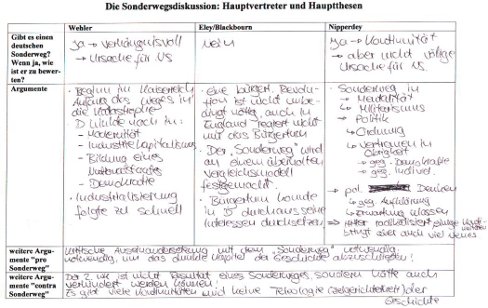 Die Sonderwegsdiskussion: Hauptvertreter und Hauptthesen
Wehler
Eley/Blackbourn
Nipperdey
Gibt es einen
deutschen
Sonderweg?
Wenn ja, wie
ist er zu bewer-
ten?
ja → verhängnisvoll
→ Ursache für NS
nein
ja → Kontinuität
→ aber nicht völlige
Ursache für NS
Argumente
- Beginn im Kaiserreich
Anfang des Weges in
die Katastrophe
- D hinkte nach in:
- Modernität
- Industriekapitalismus
- Bildung eines
Nationalstaates
- Demokratie
- Industrialisierung
folgte zu schnell
- eine bürgerl. Revolu-
tion ist nicht unbe-
dingt nötig, auch in
England regiert nicht
nur das Bürgertum
- Der "Sonderweg" wird
an einem überholten
Vergleichsmodell
festgemacht
- Bürgertum konnte
in D durchaus seine
Interessen durchsetzen
- Sonderweg in
→ Mentalität
→ Militarismus
→ Politik
↳ Ordnung
↳ Vertrauen in
Obrigkeit
↳ geg. Demokratie
↳ geg. Individ.
→ pol. Denken
↳ geg. Aufklärung
↳
→ einige
bringt aber auch viel neues
weitere Argu-
mente "pro
Sonderweg"
kritische Auseinandersetzung mit dem "Sonderweg" notwendig
notwendig, um das dunkle Kapitel der Geschichte abzuschließen!
weitere Argu-
mente "contra
Sonderweg"
Der 2. WK ist nicht Resultat eines Sonderweges, sondern hätte auch
verhindert werden können!
Es gibt viele Kontinuitäten und keine Teleologie (Zielgerichtetheit) der
Geschichte